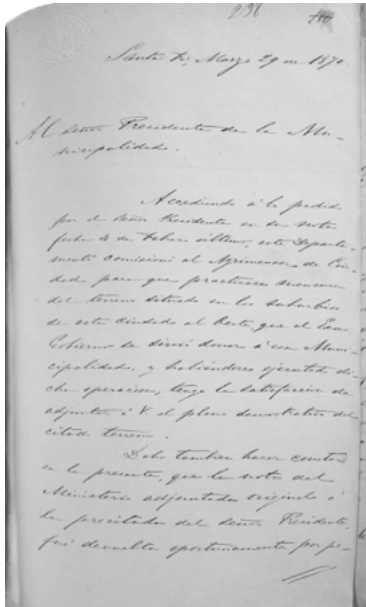 236
Santa Fé, Marzo 29 de 1890.
Al Señor Presidente de la Mu-
nicipalidad.
Accediendo á lo pedido
por el Señor Presidente en su nota
fecha 4 de Febrero último, este Departa-
mento comisionó al Agrimensor de Ciu-
dad para que practicase mensura
del terreno situado en los suburbios
de esta ciudad al Oeste, que el Exmo
Gobierno se sirvió donar á esa Muni-
cipalidad, y habiéndose ejecutado di-
cha operacion, tengo la satisfaccion de
adjuntar á V. el plano demostrativo del
citado terreno.
Debo tambien hacer constar
en la presente, que la nota del
Ministerio adjuntada original á
la precitada del Señor Presidente,
fué devuelta oportunamente por pe-